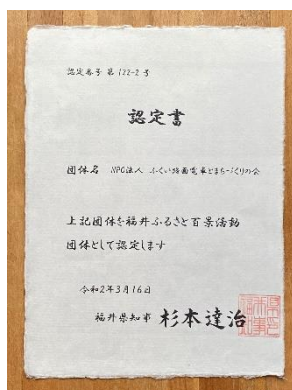 認定番号 第 122-2 号
認定書
団体名 NPO法人 ふくい路面電車とまちづくりの会
上記団体を福井ふるさと百景活動
団体として認定します
令和2年3月16日
福井県知事 杉本達治